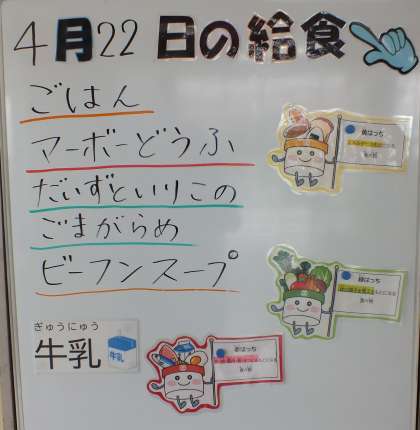 4月22日の給食
ごはん
マーボーどうふ
だいずといりこの
ごまがらめ
ビーフンスープ
ぎゅうにゅう
牛乳
牛乳
黄はっち
緑はっち
赤はっち